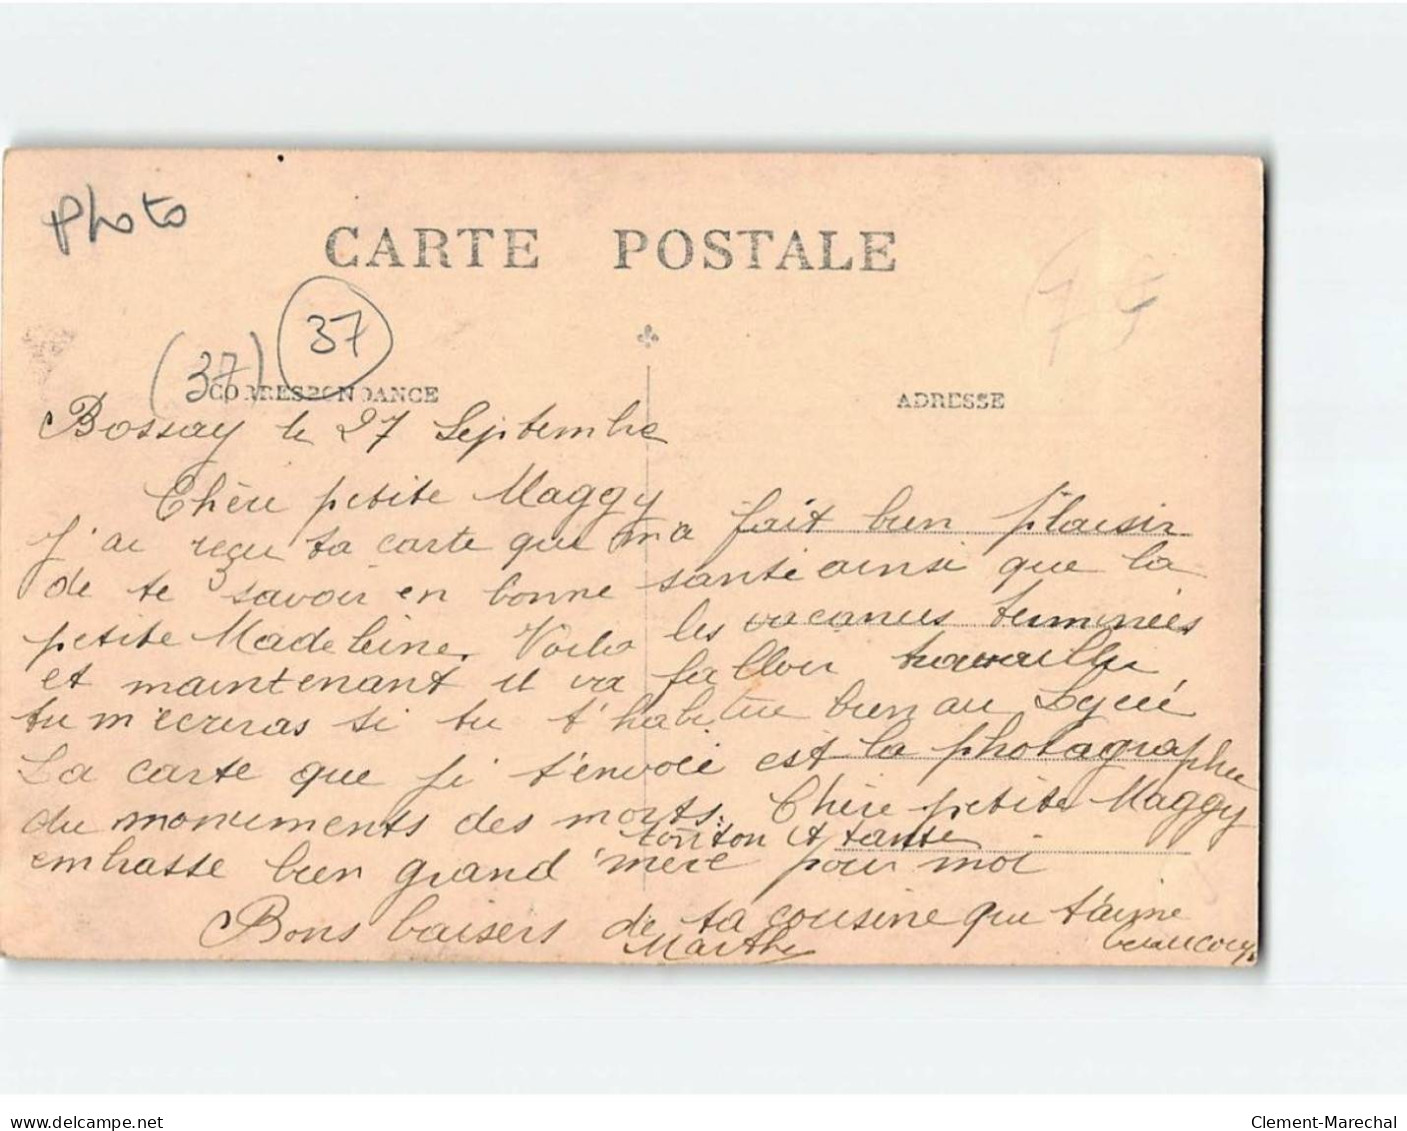 Photo
CARTE POSTALE
(37)
37
75
CORRESPONDANCE
ADRESSE
Bossay le 27 Septembre
Chère petite Maggy
J'ai reçu ta carte qui m'a fait bien plaisir
de te savoir en bonne santé ainsi que la
petite Madeleine. Voila les vacances terminées
et maintenant il va falloir travailler
tu m'ecriras si tu t'habitue bien au Lycée
La carte que je t'envoie est la photographie
du monuments des morts. Chère petite Maggy
tonton et tante
embrasse bien grand'mère pour moi
Bons baisers de ta cousine qui t'aime
Marthe
beaucoup
www.delcampe.net
Clement-Marechal